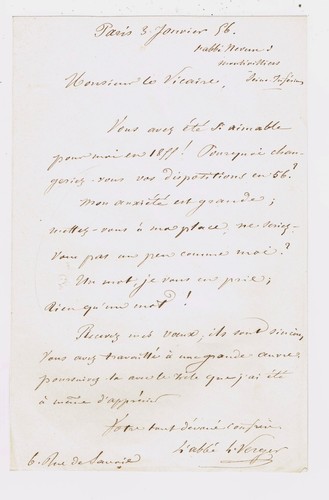 Paris 3 Janvier 56.
l'abbé
montivilliers
Seine Infér
Monsieur le Vicaire,
Vous avez été si aimable
pour moi en 1855! Pourquoi chan-
geriez-vous vos dispositions en 56?
Mon anxiété est grande;
mettez-vous à ma place, ne seriez-
vous pas un peu comme moi?
Un mot, je vous en prie;
Rien qu'un mot!
Recevez mes vœux, ils sont sincères,
Vous avez travaillé à une grande œuvre
poursuivez la avec le zèle que j'ai été
à même d'apprécier
Votre tout dévoué confrère
L'abbé L. Verger
6. Rue de Savoie